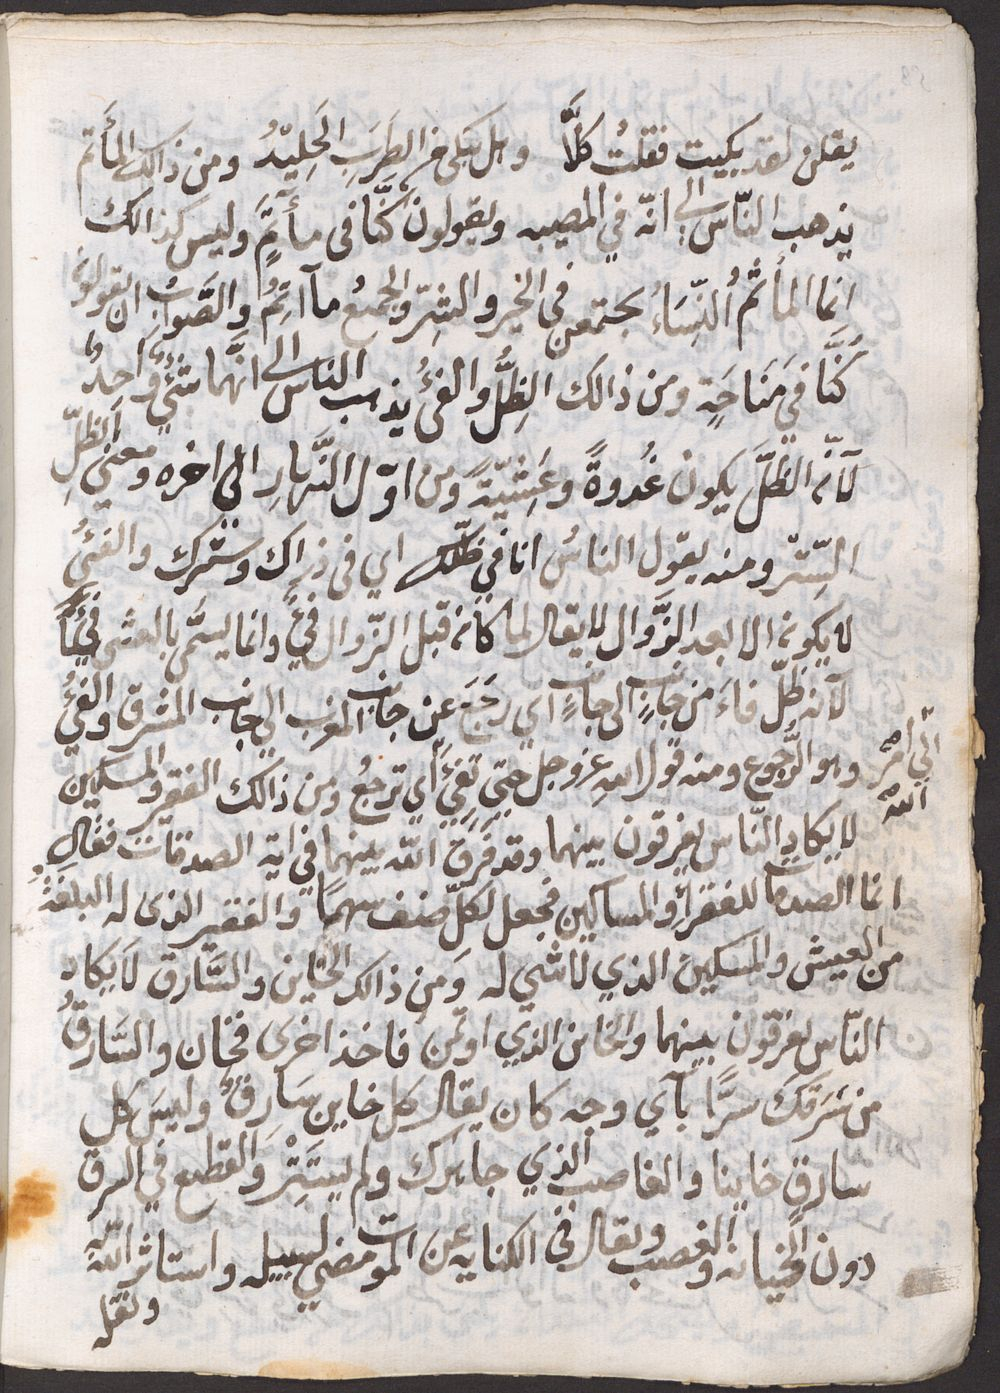 يقلن لقد بكيت فقلتُ كلَّا وهل تبكى من الطَرَبِ الجَلِيْدُ ومن ذالك المأتم
يذهب النّاس الى انّه في المصيبه ويقولون كنَّا فى مأتمٍ وليس كذالك
انما المأتمُ النِّسَاءُ يجتمعن في الخير والشرّ والجميعُ مآتمُ والصَّوابُ ان يقولوُ
كنَّا في مَنَاحَةٍ ومن ذالك الظِلُّ والفىُٔ يذهب الناس الى انَّهما شئٌ وَاحِدٌ
لانّه الظلَّ يكون غُدوةً وعَشِيّةً ومن اوّل النَّهارِ الى اخره ومعنى الظلِّ
السِّترُ ومنه يقول الناسُ انا في ظلّك اي فى ذراك وسترك والفئُ
لا يكونه الا بعد الزَّوال لا يقال لما كانه قبل الزّوال فئٌ وانما يسمَّى بالعشى فَيْئًا
لانه ظلّ فاءَ من جانبٍ الى جانبٍ اي رجَعَ عن جانب المغرب الى جانب المشرق والفئُ
وهو الرُّجوع ومنه قول الله عز وجل حتى تفئَ أي ترجعُ ومن ذالك الفقير والمسكين
الى امر
الله
لا يكاد النّاس يفرقون بينهما وقد فرقَ الله بينهما في اية الصدقات فقال
انما الصدقات للفقرأ والمساكين فجعل لكلّ صنف سهمًا والفقير الذى له البلغةُ
من العيش والمسكين الذي لا شي له وَمن ذالك الخاين والسَّارق لَا يكاد
النّاس يفرقون بينهما والخاين الذي اوتمن فاخذ اخرى فخان والسَّارقُ
من سَرَقكَ سرًّا بآي وجه كان يقال كل خاينٍ سَارقٌ وليسَ كل
سارقٍ خاينا والغاصب الذي جاهرك ولم يستَتِرْ والقطع في السرق
دون الخيانه والغصب ويقال فى الكنايه عن الموت مضى لسبيله واستاثر اللّه
ونقل